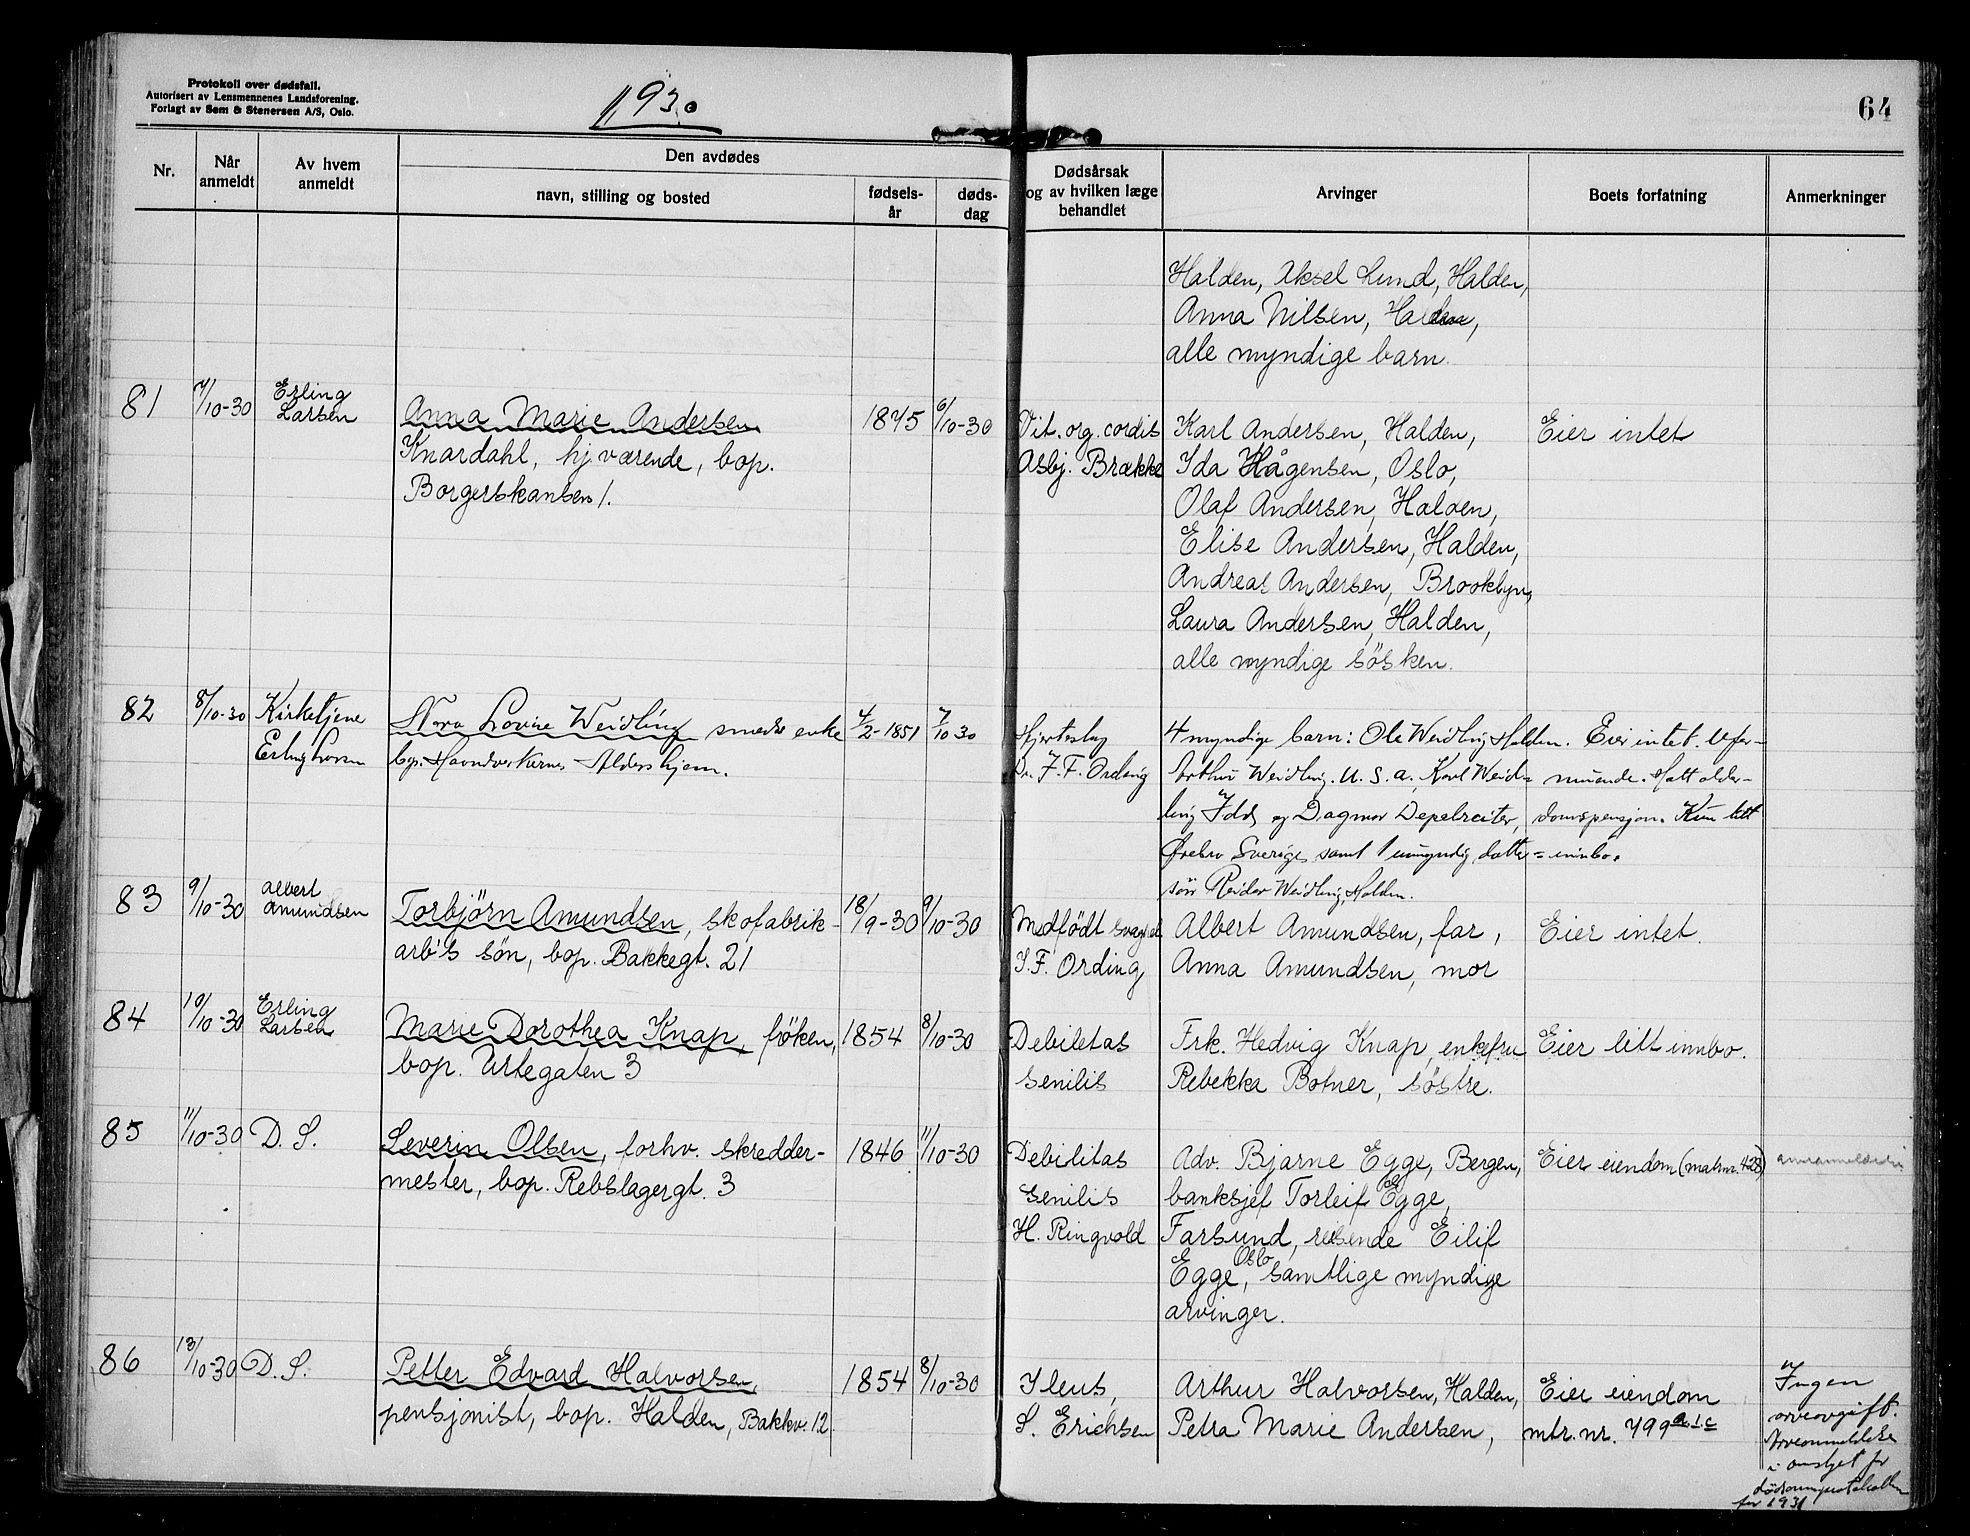 Protokoll over dødsfall.
Autorisert av Lensmennenes Landsforening.
Forlagt av Sem & Stenersen A/S, Oslo.
1930
64
Nr.
Når
anmeldt
Av hvem
anmeldt
Den avdødes
navn, stilling og bosted
fødsels-
år
døds-
dag
Dødsårsak
og av hvilken læge
behandlet
Arvinger
Boets forfatning
Anmerkninger
Halden, Aksel Lund, Halden,
Anna Nilsen, Halden,
alle myndige barn.
81
7/10-30
Erling
Larsen
Anna Marie Andersen
Knardahl, hj.værende, bop.
Borgerskansen 1.
1875
6/10-30
Vit. org. cordis
Asbj. Brække
Karl Andersen, Halden,
Ida Hågensen, Oslo,
Olaf Andersen, Halden,
Elise Andersen, Halden,
Andreas Andersen, Brooklyn,
Laura Andersen, Halden,
alle myndige søsken.
Eier intet
82
8/10-30
Kirketjene
Erling Larsen
Nora Lovise Weidling smeds enke
Haandverkernes Aldershjem.
4/2-1851
7/10 30
Hjerteslag
Dr. J. F. Ording
4 myndige barn: Ole Weidling Halden.
Arthur Weidling. U. S. A, Karl Weid-
ling Idd, og Dagmar Depelreiter,
Ørebro Sverige samt 1 umyndig datter-
søn Reidar Weidling, Halden.
Eier intet. Ufor-
muende. Hatt alder-
domspensjon. Kun litt
innbo.
83
9/10-30
Albert
Amundsen
Torbjörn Amundsen, skofabrik-
arb's søn, bop. Bakkegt. 21
18/9-30
9/10-30
Medfödt svaghet
J. F. Ording
Albert Amundsen, far,
Anna Amundsen, mor
Eier intet.
84
10/10-30
Erling
Larsen
Marie Dorothea Knap, fröken,
bop. Urtegaten 3
1854
8/10-30
Debiletas
senilis
Frk. Hedvig Knap, enkefru
Rebekka Botner, søstre.
Eier litt innbo.
85
11/10-30
D. S.
Severin Olsen, forhv. skredder-
mester, bop. Rebslagergt. 3
1846
11/10-30
Debilitas
senilis
H. Ringvold
Adv. Bjarne Egge, Bergen,
banksjef Torleif Egge,
Farsund, reisende Eilif
Egge, Oslo, samtlige myndige
arvinger.
Eier eiendom (matrnr. 428)
86
13/10-30
D. S.
Petter Edvard Halvorsen,
pensjonist, bop. Halden, Bakkv. 12.
1854
8/10-30
Ileus,
S. Erichsen
Arthur Halvorsen, Halden,
Petra Marie Andersen,
Eier eiendom
mtr. nr. 499
Ingen
arveavgift.
Arveanmeldelse
i omslget for
for 1931